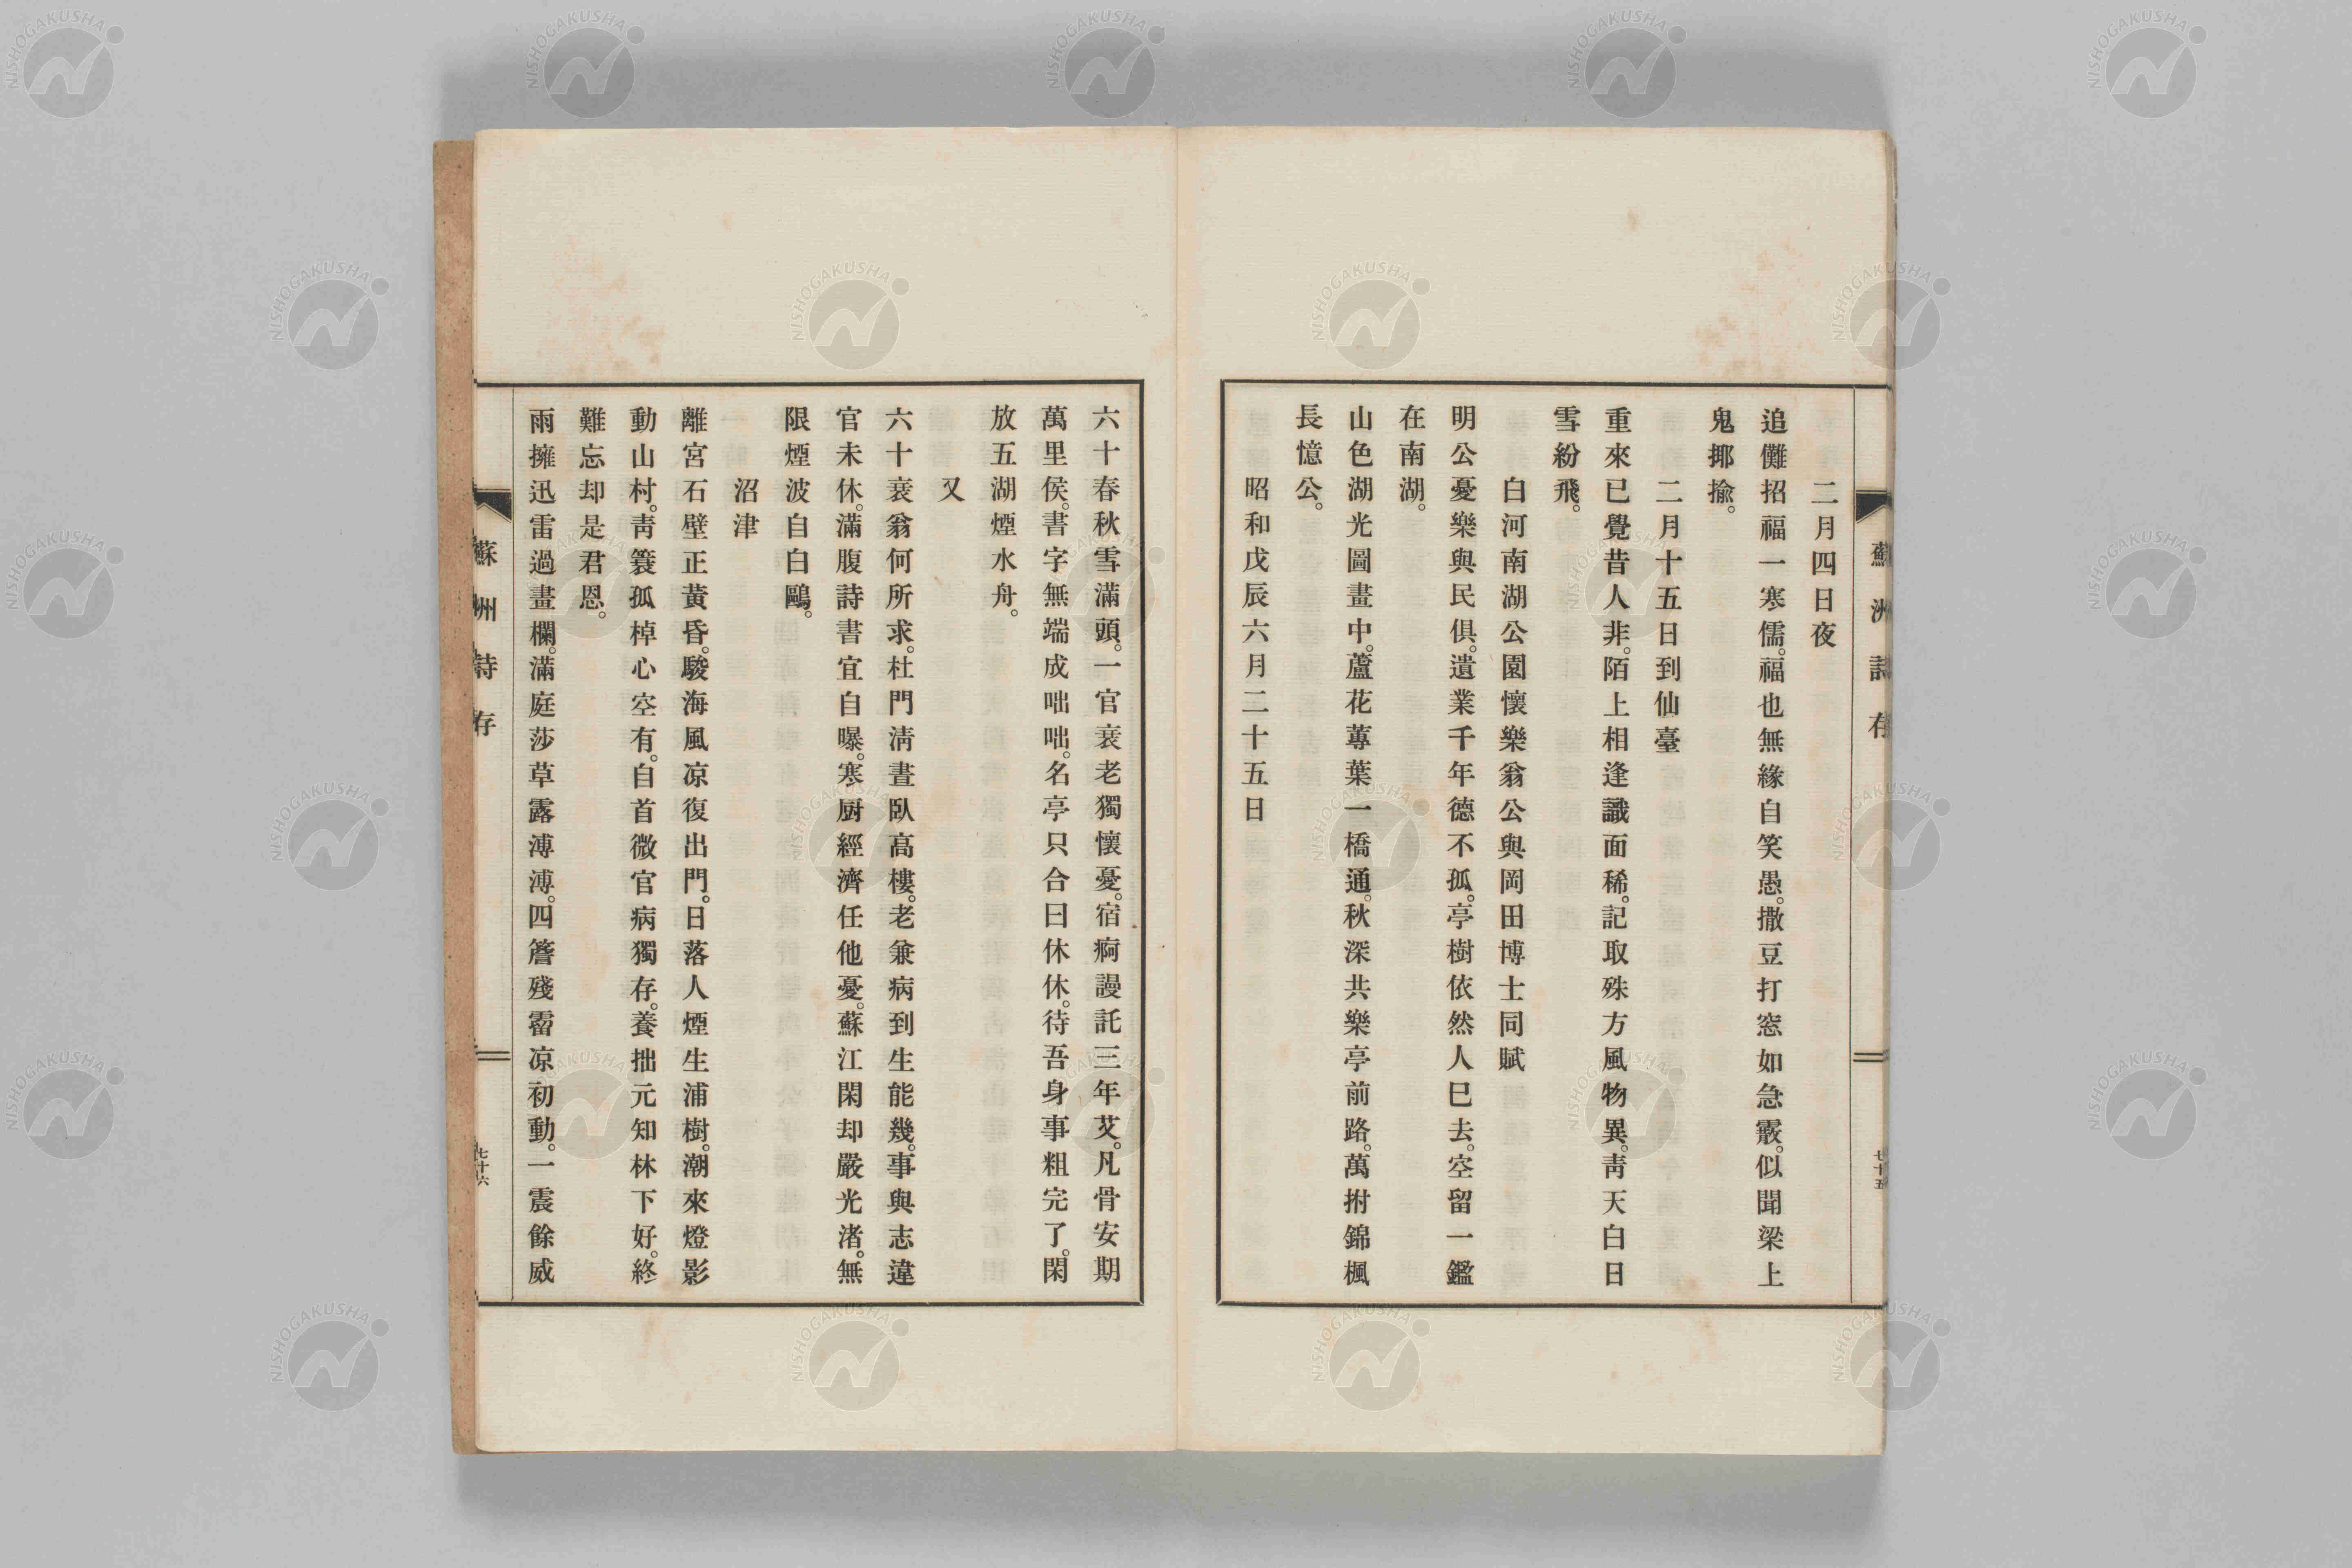 蘇洲詩存
七十五
二月四日夜
追儺招福一寒儒。福也無緣自笑愚。撒豆打窓如急霰。似聞梁上
鬼揶揄。
二月十五日到仙臺
重來已覺昔人非。陌上相逢識面稀。記取殊方風物異。靑天白日
雪紛飛。
白河南湖公園懷樂翁公與岡田博士同賦
明公憂樂與民俱。遺業千年德不孤。亭樹依然人已去。空留一鑑
在南湖。
山色湖光圖畫中。蘆花蓴葉一橋通。秋深共樂亭前路。萬拊錦楓
長憶公。
昭和戊辰六月二十五日
六十春秋雪滿頭。一官衰老獨懷憂。宿痾謾託三年艾。凡骨安期
萬里侯。書字無端成咄咄。名亭只合曰休休。待吾身事粗完了。閑
放五湖煙水舟。
又
六十衰翁何所求。杜門淸晝臥高樓。老兼病到生能幾。事與志違
官未休。滿腹詩書宜自曝。寒厨經濟任他憂。蘇江閑却嚴光渚。無
限煙波自白鷗。
沼津
離宮石壁正黃昏。駿海風凉復出門。日落人煙生浦樹。潮來燈影
動山村。靑簑孤棹心空有。自首微官病獨存。養拙元知林下好。終
難忘却是君恩。
雨擁迅雷過畫欄。滿庭莎草露溥溥。四簷殘霤凉初動。一震餘威
蘇洲詩存
七十六
NISHOGAKUSHA